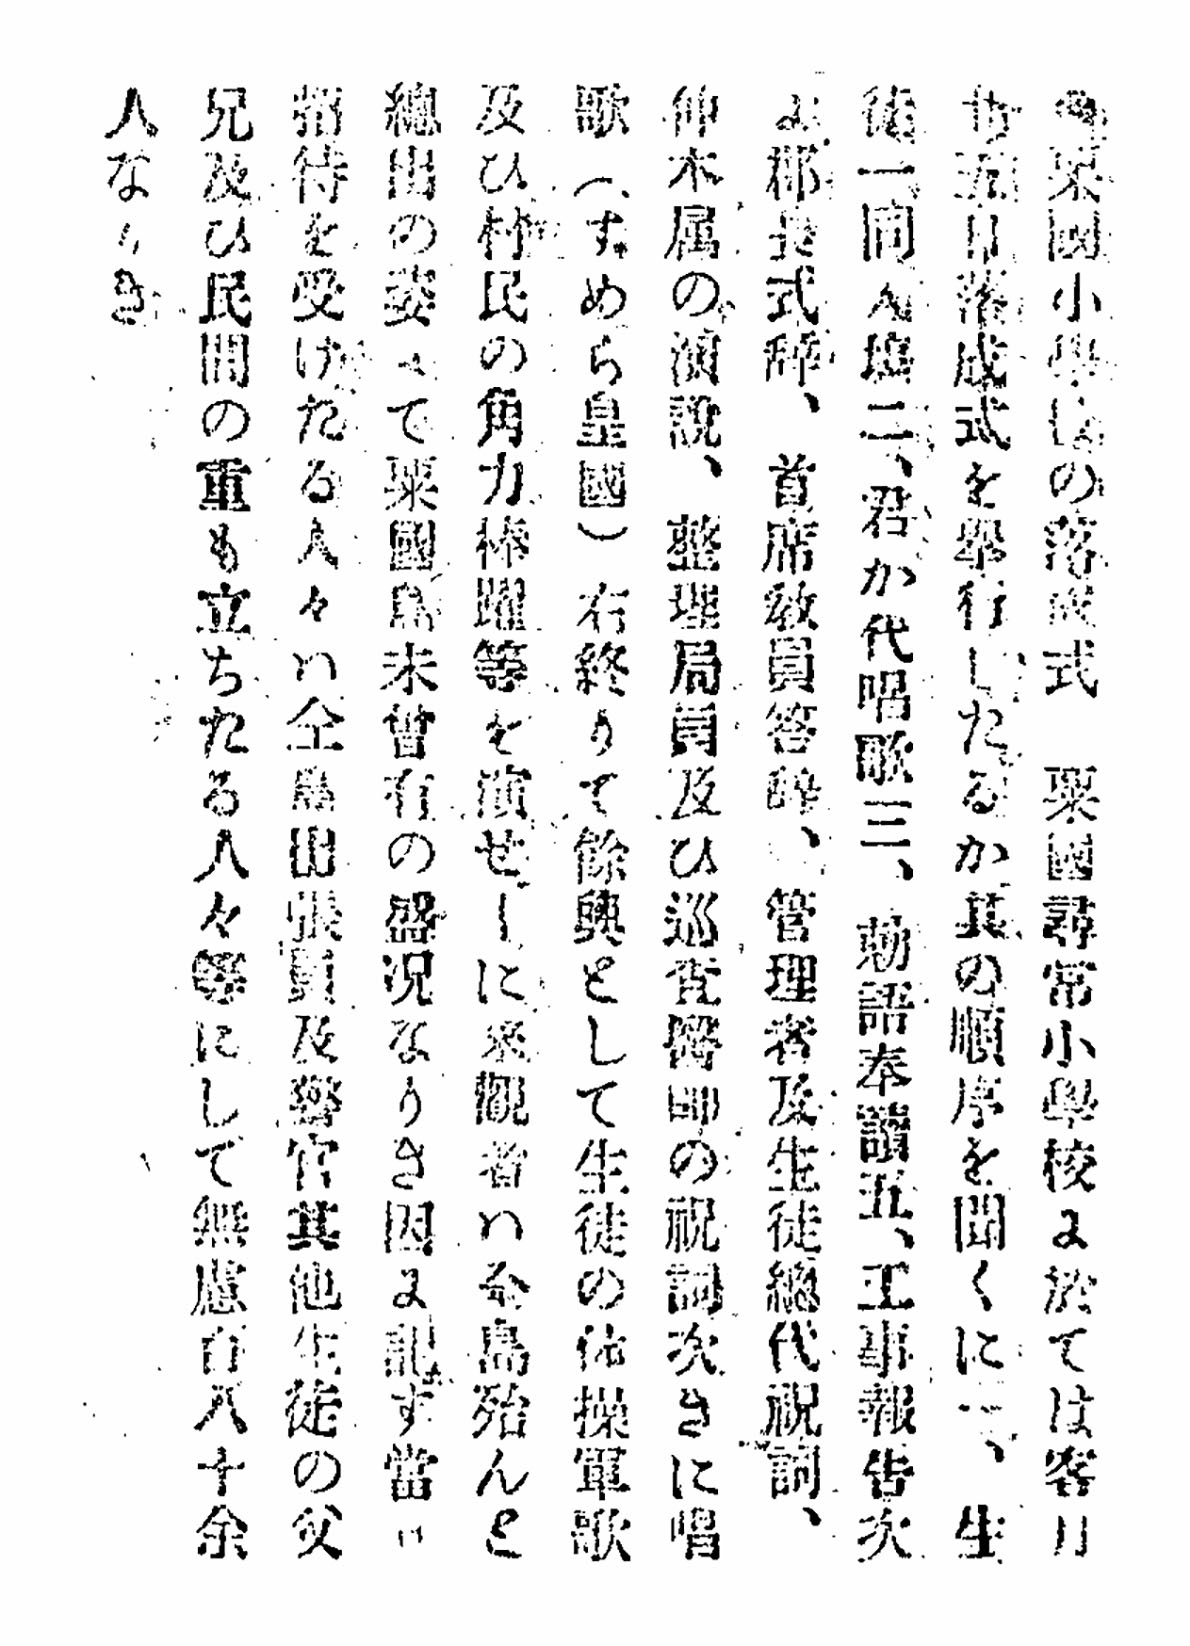 粟國小學校の落成式　粟國尋常小學校よ於ては客月
廿五日落成式を舉行したるか其の順序を聞くに一、生
徒一同入塲二、君か代唱歌三、勅語奉讀五、工事報告次
よ郡長式辞、首席敎員答辞、管理者及生徒總代祝詞、
仲本属の演説、整理局員及ひ巡査醫師の祝詞次きに唱
歌（すめら皇國）右終りて餘興として生徒の体操軍歌
及ひ村民の角力棒躍等を演せしに来観者ハ仝島殆んと
總出の姿よて粟國島未曾有の盛况なりき因よ記す當日
招待を受けたる人々ハ仝島出張員及警官其他生徒の父
兄及ひ民間の重も立ちたる人々等にして無慮百八十余
人なりき